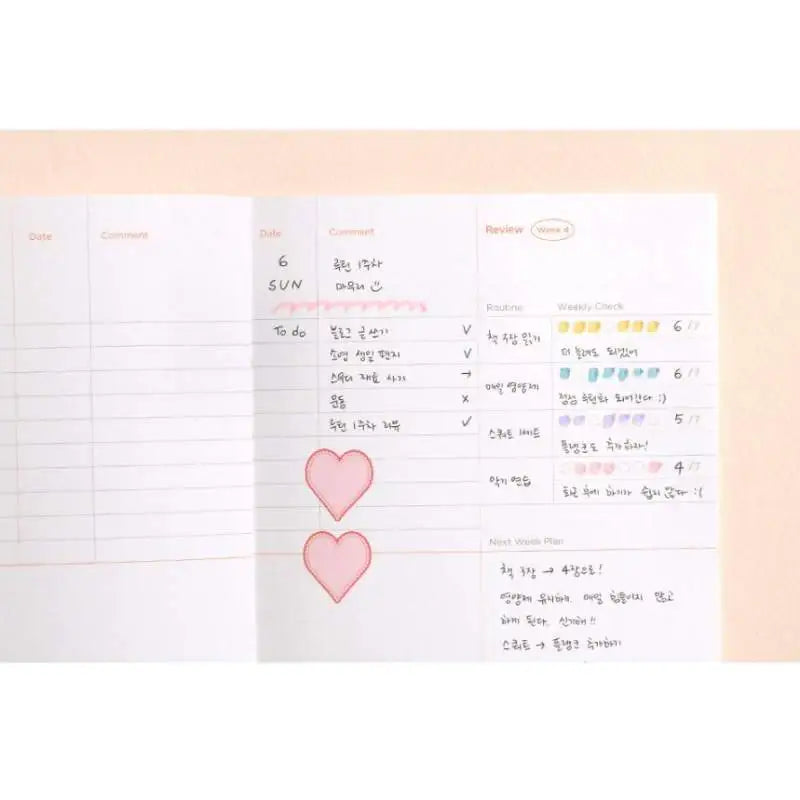 Date Comment
Date Comment
6 루틴 1주차
SUN 마무리
To do 블로그 글쓰기 ✓
소영 생일 편지 ✓
스터디 재료 사기 →
운동 ×
루틴 1주차 리뷰 ✓
Review Week 4
Routine Weekly Check
책 3장 읽기 6/7
더 늘려도 되겠어
매일 영양제 6/7
점점 루틴화 되어간다 :)
스쿼트 1세트 5/7
플랭크도 추가하자!
악기 연습 4/7
퇴근 후에 하기가 쉽지 않다 :(
Next Week Plan
책 3장 → 4장으로!
영양제 유지하기. 매일 힘들이지 않고
하게 된다. 신기해!!
스쿼트 → 플랭크 추가하기